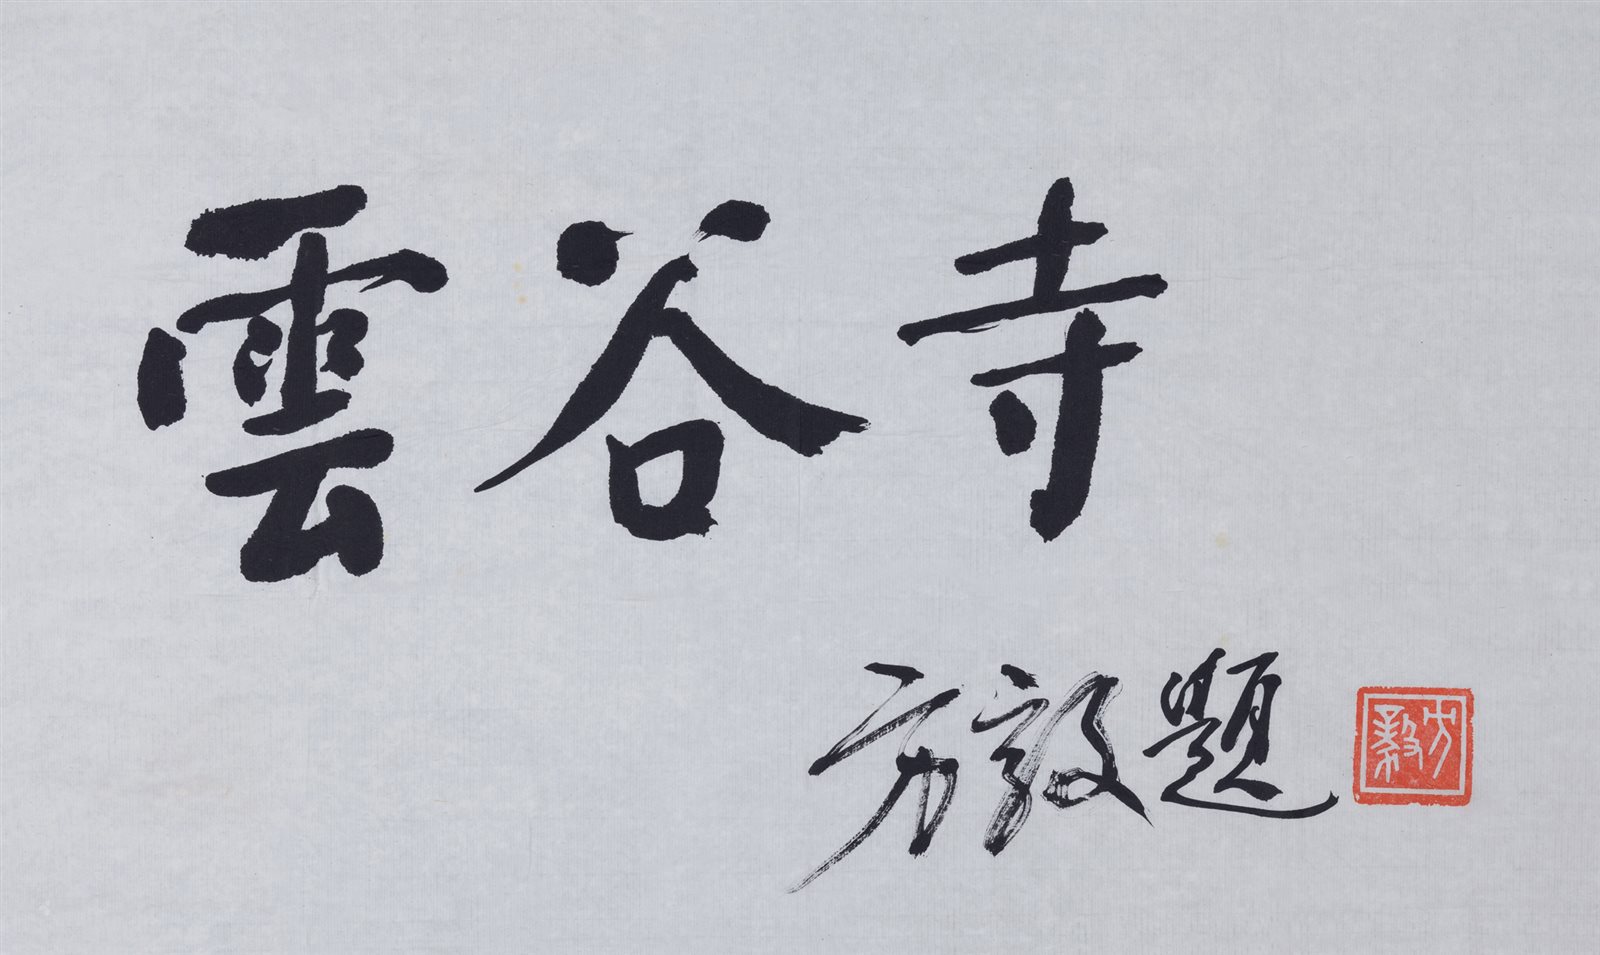 雲谷寺
方毅題
方毅